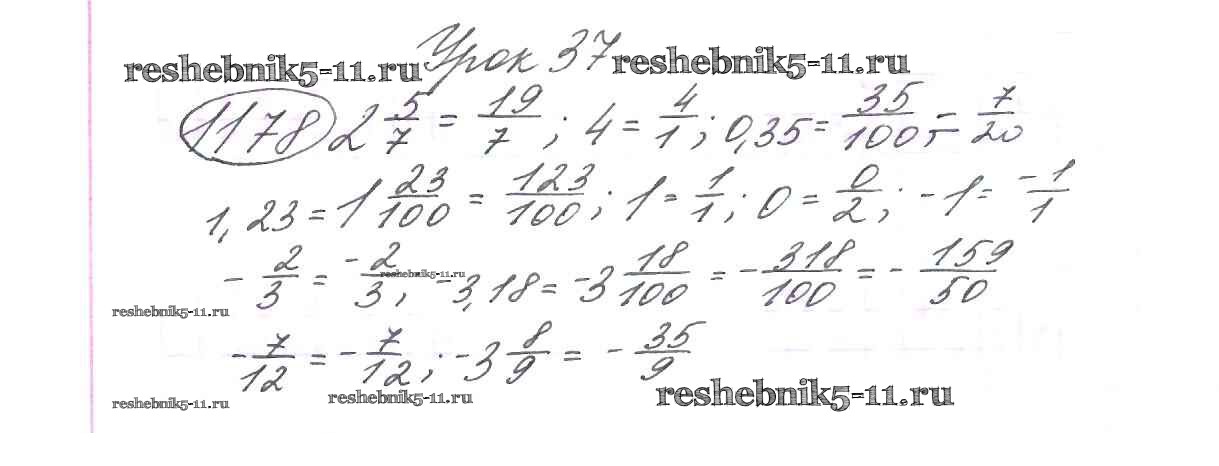 Урок 37
reshebnik5-11.ru reshebnik5-11.ru
1178 2 5/7 = 19/7 ; 4 = 4/1 ; 0,35 = 35/100 = 7/20
1,23 = 1 23/100 = 123/100 ; 1 = 1/1 ; 0 = 0/2 ; -1 = -1/1
- 2/3 = -2/3 ; -3,18 = -3 18/100 = - 318/100 = - 159/50
reshebnik5-11.ru
reshebnik5-11.ru
- 7/12 = - 7/12 ; -3 8/9 = - 35/9
reshebnik5-11.ru reshebnik5-11.ru reshebnik5-11.ru